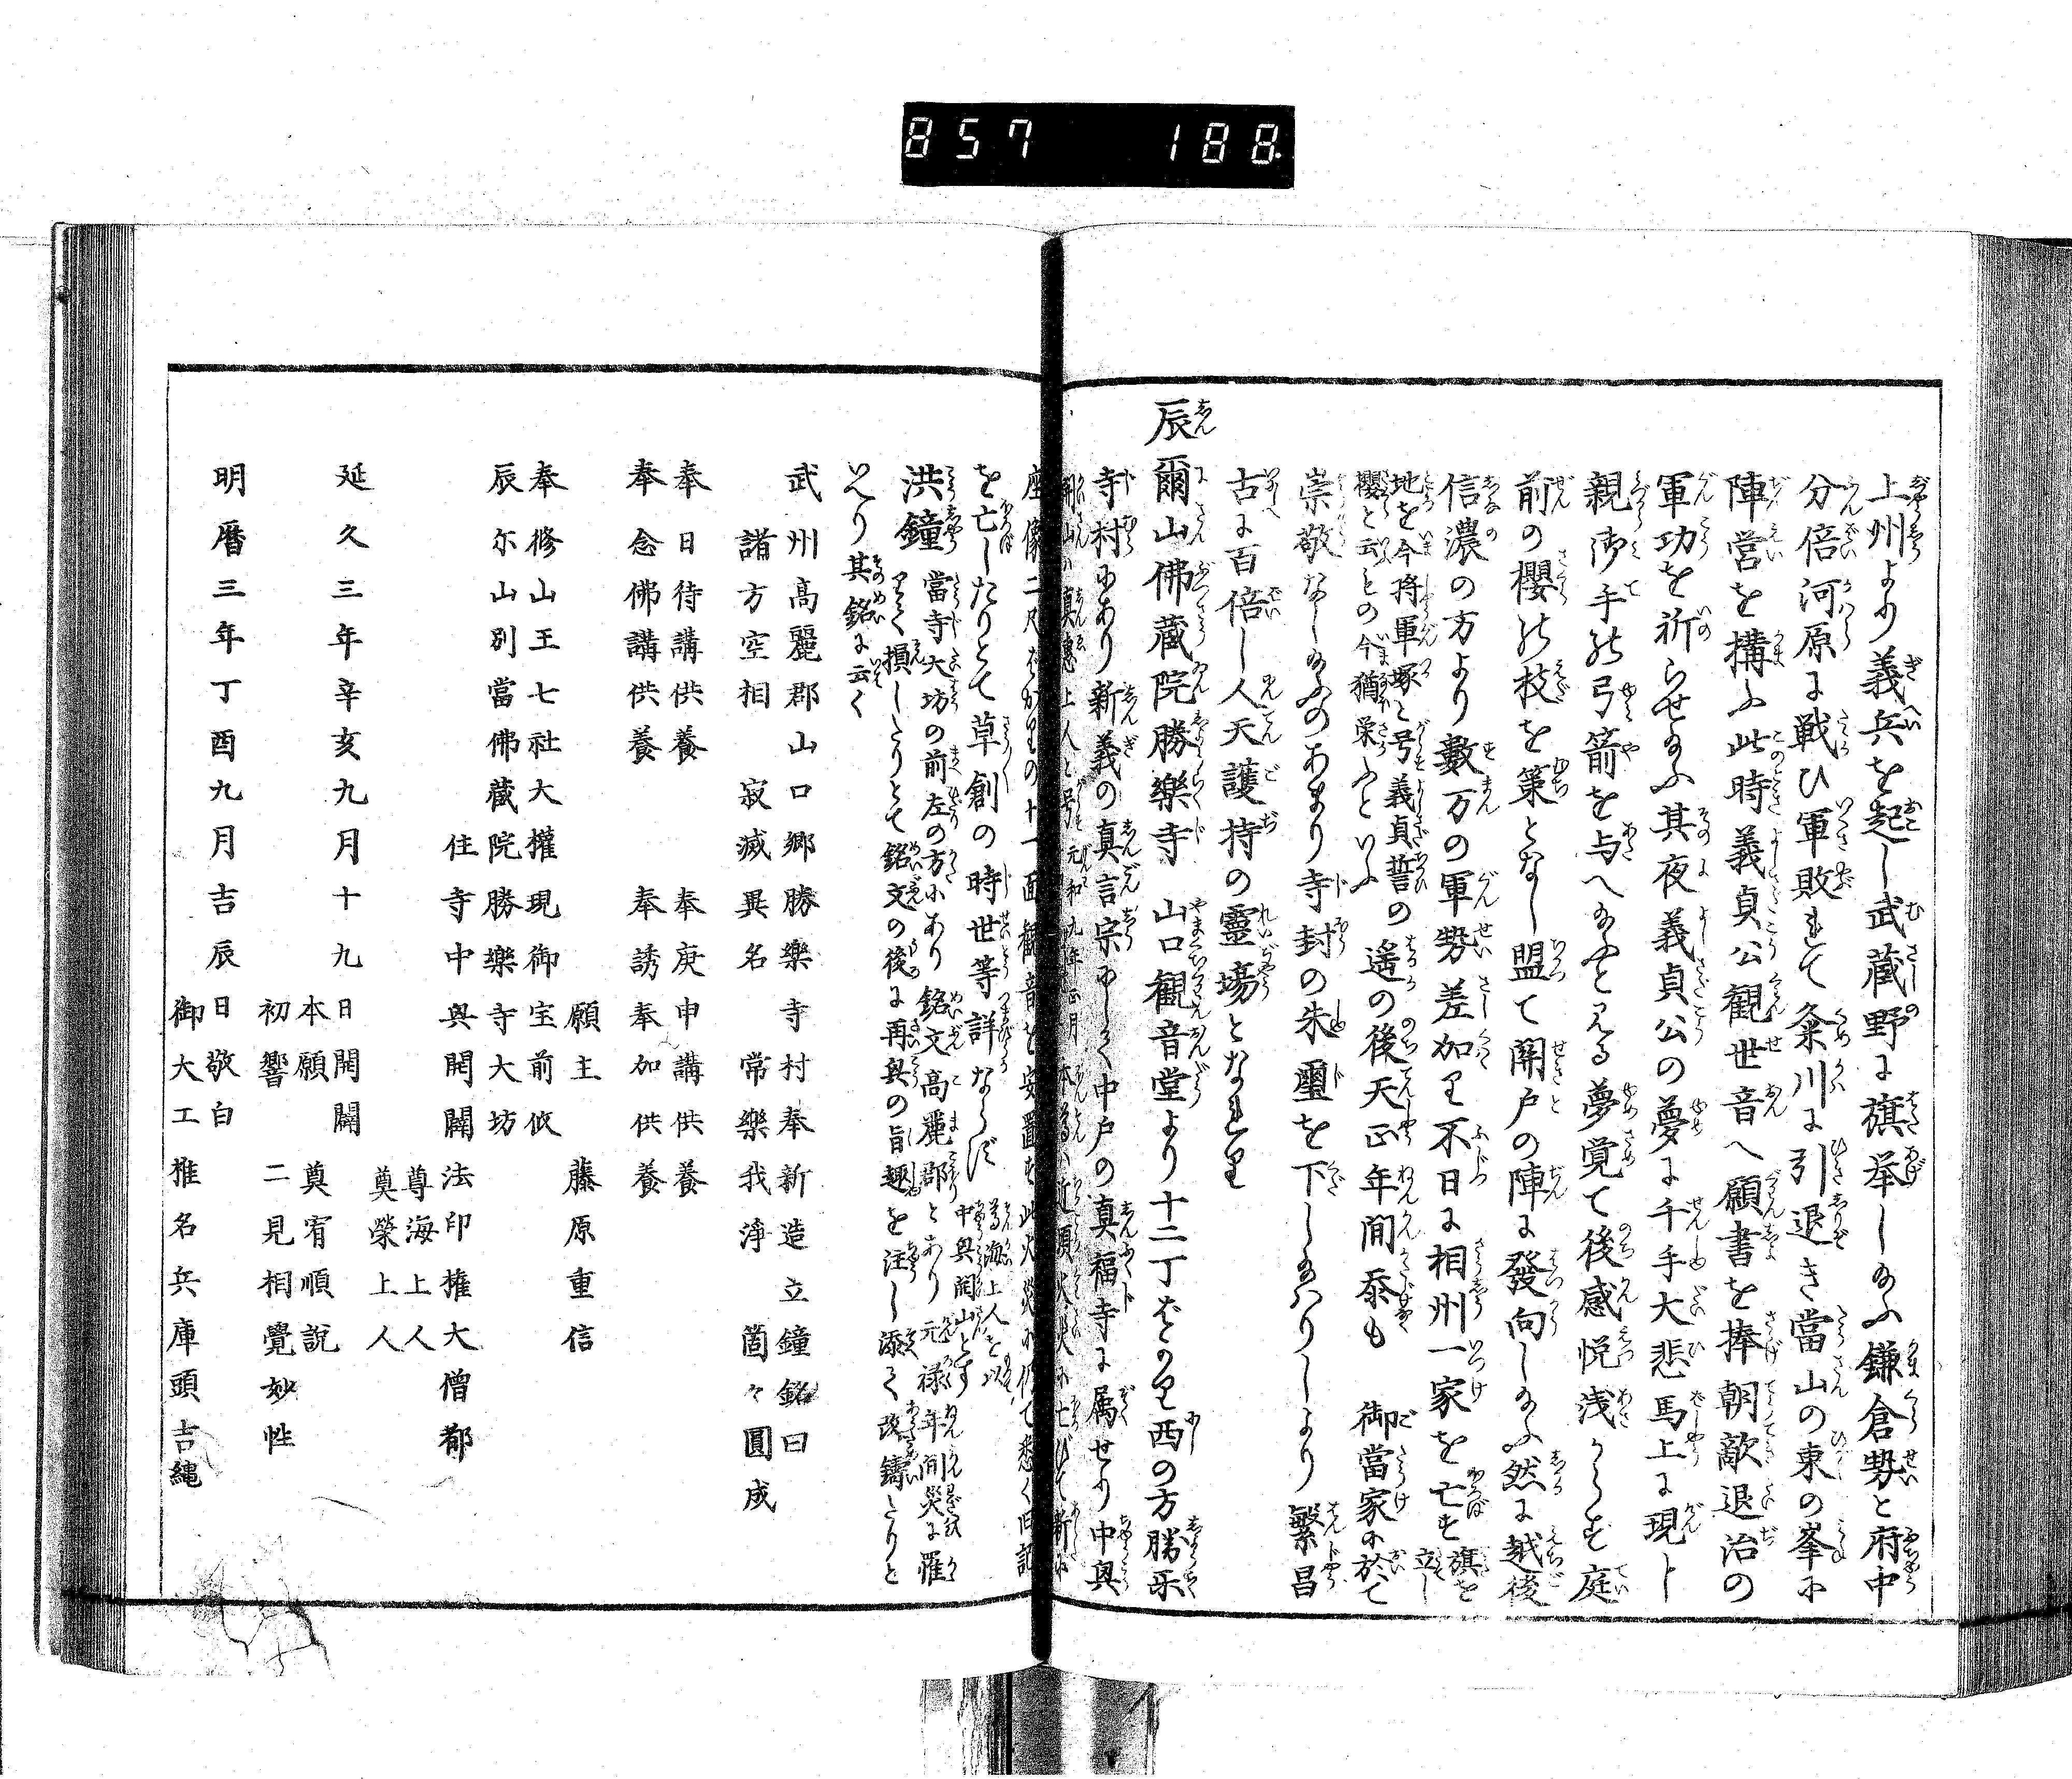 857 188
上州より義兵を起し武蔵野に旗挙し給ふ鎌倉勢と府中
分倍河原に戦ひ軍敗れて粂川に引退き當山の東の峯に
陣営を構ふ此時義貞公観世音へ願書を捧朝敵退治の
軍功を祈らせ給ふ其夜義貞公の夢に千手大悲馬上に現し
親御手の弓箭を与へ給ふと見る夢覚て後感悦浅からず庭
前の櫻の枝を策となし盟て関戸の陣に發向し給ふ然に越後
信濃の方より數万の軍勢差加り不日に相州一家を亡す旗を立し
地を今将軍塚と号義貞誓の
櫻と云もの今猶栄ふといふ
遥の後天正年間忝も 御當家に於て
崇敬なし給ふのあまり寺封の朱璽を下し給はりしより繁昌
古に百倍し人天護持の靈場となれり
辰爾山佛蔵院勝樂寺 山口観音堂より十二丁ばかり西の方勝樂
寺村にあり新義の真言宗にして中戸の真福寺に属せり中興
開山は真惠上人と号元和九年正月
座像二尺ばかりの十一面観音を安置す此火災に依て悉く旧記
を亡したりとて草創の時世等詳ならず 尊海上人を以
中興開山とす
洪鐘 當寺大坊の前左の方にあり銘文高麗郡とあり元禄年間災に罹
りて損したりとて銘文の後に再興の旨趣を注し添て改鑄たりと
いへり其銘に云く
武州高麗郡山口郷勝樂寺村奉新造立鐘銘曰
諸方空相 寂滅異名 常樂我淨 箇々圓成
奉日待講供養 奉庚申講供養
奉念佛講供養 奉誘奉加供養
願主 藤原重信
奉修山王七社大權現御宝前仗
辰尓山別當佛蔵院勝樂寺大坊
住寺中興開闢 法印權大僧都
尊海上人
延久三年辛亥九月十九日開闢 奠榮上人
本願 奠宥順説
初響 二見相覺妙性
明暦三年丁酉九月吉辰日敬白
御大工 推名兵庫頭吉縄